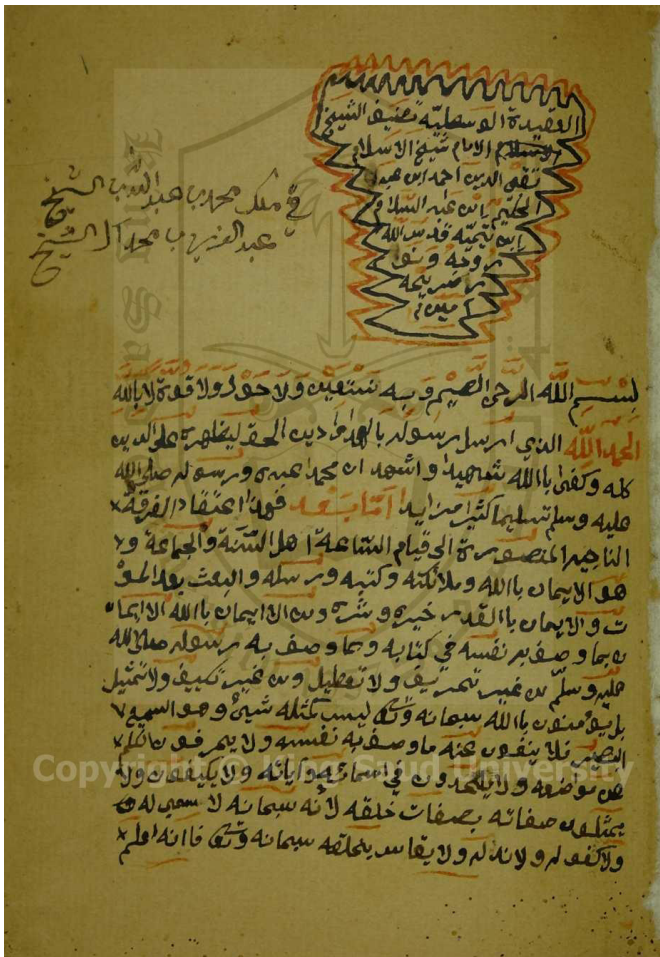 العقيدة الوسطيه تصنيف الشيخ
الامام شيخ الاسلام
تقي الدين احمد ابن عبد
الحليم ابن عبد السلام
ابن تيميه قدس الله
روحه ونور
ضريحه
آمين
في ملك محمد بن عبد اللطيف الشيخ
عبد العزيز بن محمد آل الشيخ
بسم الله الرحمن الرحيم وبه نستعين ولا حول ولا قوة الا بالله
الحمد لله الذي ارسل رسوله بالهدى ودين الحق ليظهره على الدين
كله وكفى باالله شهيدا واشهد ان محمدا عبده ورسوله صلى الله
عليه وسلم تسليما كثيرا مزايدا اما بعد فهذا اعتقاد الفرقة
الناجيه المنصورة الى قيام الساعة اهل السنة والجماعة و
هو الايمان باالله وملائكته وكتبه ورسله والبعث بعد المو
ت والايمان باالقدر خيره وشره ومن الايمان باالله الايما
ن بما وصف به نفسه في كتابه وبما وصف به رسوله صلى الله
عليه وسلم من غير تحريف ولا تعطيل ومن غير تكييف ولا تمثيل
بل يؤمنون باالله سبحانه وتعالى ليس كمثله شيئ وهو السميع
البصير فلا ينفون عنه ما وصف به نفسه ولا يحرفون الكلم
عن مواضعه ولا يلحدون في اسمائه وآياته ولا يكيفون ولا
يمثلون صفاته بصفات خلقه لأنه سبحانه لا سمي له
ولا كفو له ولا ند له ولا يقاس بخلقه سبحانه وتعالى فاانه اعلم
Copyright © King Saud University